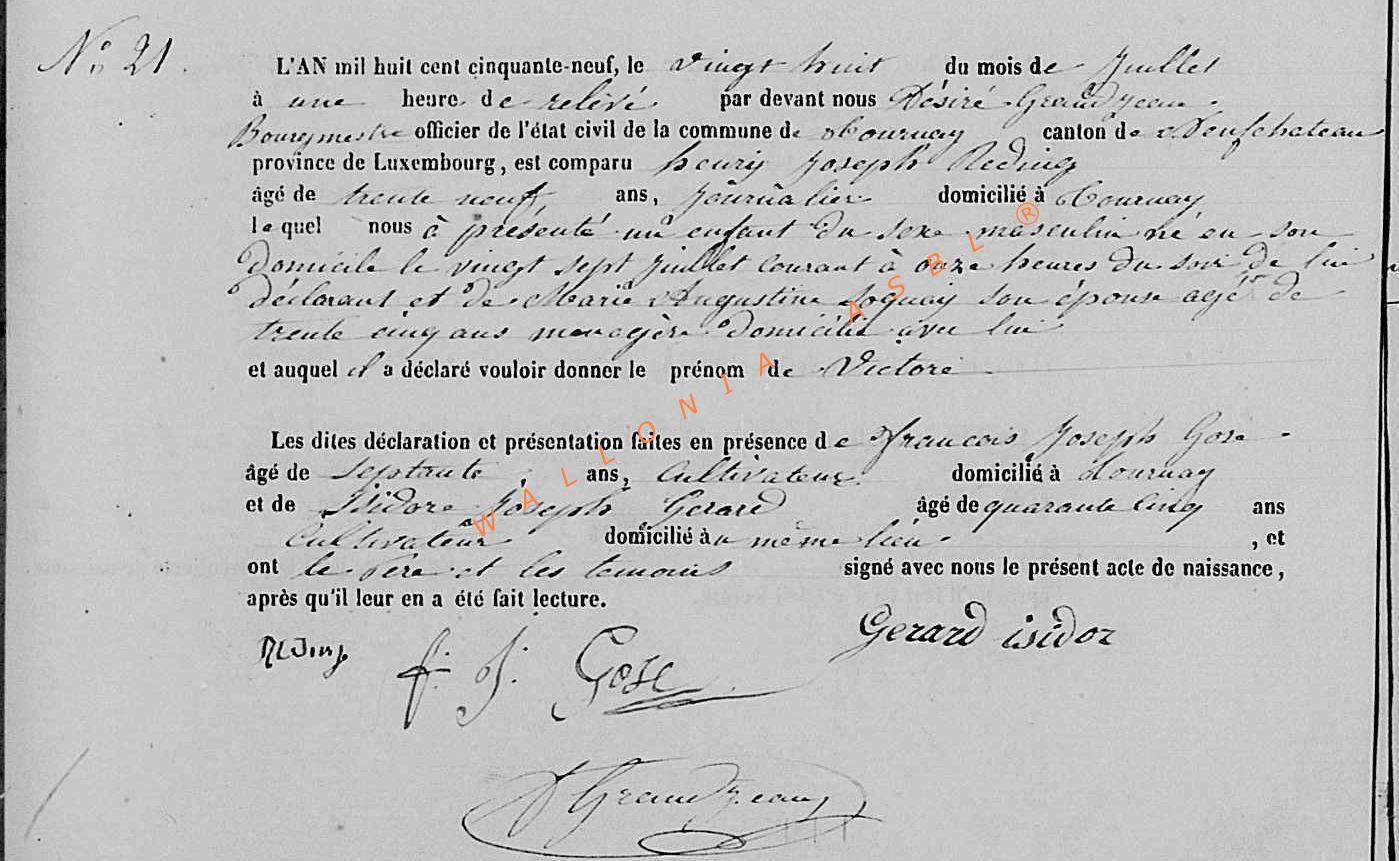 N° 21.
L'AN mil huit cent cinquante-neuf, le vingt huit du mois de Juillet
à une heure de relévé par devant nous Désiré Grandjean
Bourgmestre officier de l'état civil de la commune de Tournay canton de Neufchateau
province de Luxembourg, est comparu henry Joseph Reding
âgé de trente neuf ans, journalier domicilié à Tournay
lequel nous à présenté un enfant du sexe masculin né en son
domicile le vingt sept juillet courant à onze heures du soir de lui
déclarant et de Marie Augustine son épouse agé de
trente cinq ans menagère domicilié avec lui
et auquel il a déclaré vouloir donner le prénom de Victore
Les dites déclaration et présentation faites en présence de francois Joseph Gose
âgé de septante ans, cultivateur domicilié à Tournay
et de Isidore Joseph Gerard âgé de quarante cinq ans
Cultivateur domicilié au même lieu , et
ont le Père et les temoins signé avec nous le présent acte de naissance,
après qu'il leur en a été fait lecture.
Gerard isidor
Reding
f. J. Gose
D Grandjean
WALLONIA ASBL ®